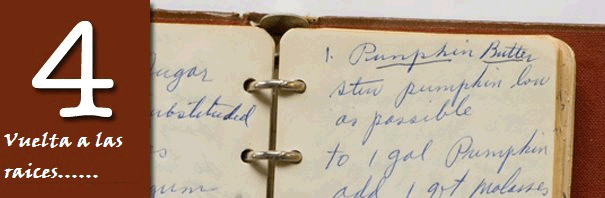 4
Vuelta a las
raices......
Sugar
substituted
1. Pumpkin Butter
stew pumpkin low
as possible
to 1 gal Pumpkin
add 1 qt molasses